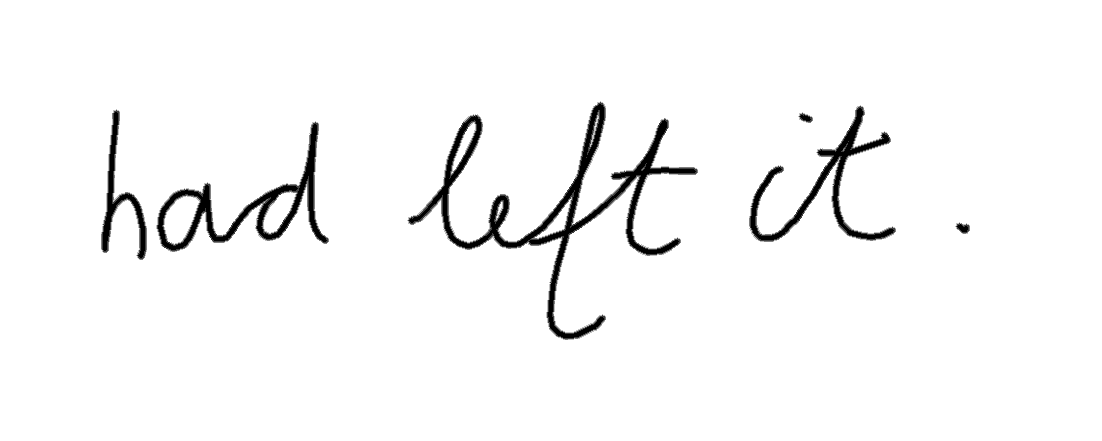 had left it.